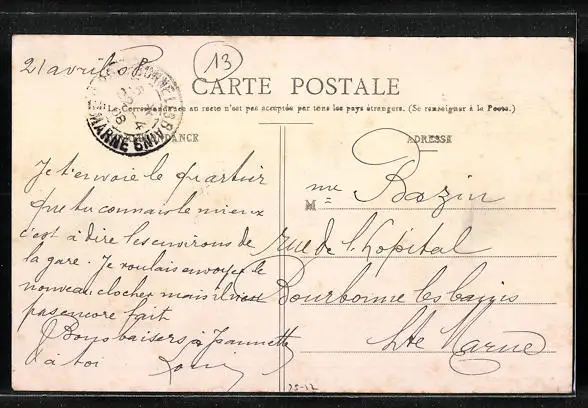 21 avril 08
13
CARTE POSTALE
La Correspondance au recto n'est pas acceptée par tous les pays étrangers. (Se renseigner à la Poste.)
CORRESPONDANCE
ADRESSE
BOURBONNE-LES-BAINS
22-4
08
Hte MARNE
Je t'envoie le quartier
que tu connais le mieux
c'est à dire les environs de
la gare. Je voulais envoyer le
nouveau clocher mais il n'est
pas encore fait
Bons baisers à Jeannette
et à toi
Mme Bazin
M
rue de l'hôpital
Bourbonne les bains
Hte Marne
25-12